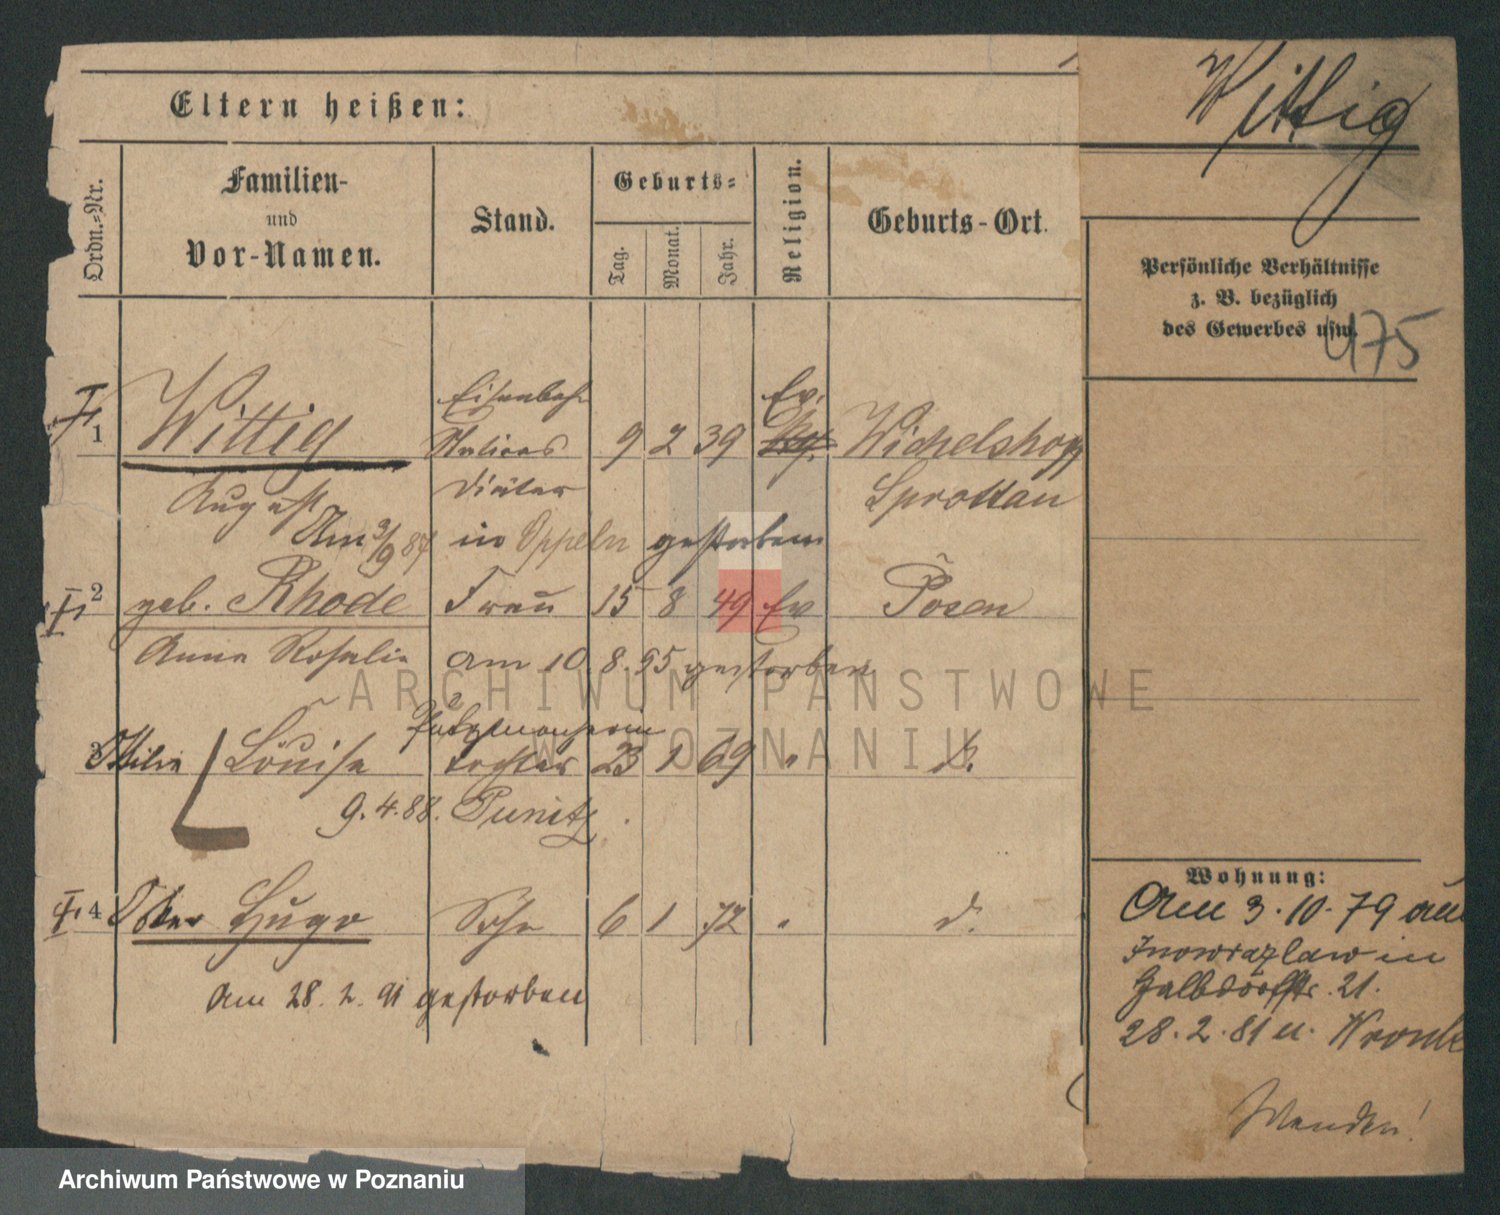 Wittig
Eltern heißen:
Ordn.-Nr.
Familien-
und
Vor-Namen.
Stand.
Geburts-
Tag.
Monat.
Jahr.
Religion.
Geburts-Ort.
Persönliche Verhältnisse
z. B. bezüglich
des Gewerbes usw.
475
1 Wittig Eisenbahn 9 2 39 Ev. Wichelsdorf
August Diätar Sprottau
Am 3/9 87 in Oppeln gestorben
2 geb. Rhode Frau 15 8 49 Ev Posen
Anna Rosalie am 10. 8. 95 gestorben
Putzmacherin
3 Ottilie Louise Tochter 23 1 69 " d.
9. 4. 88. Punitz.
4 Oskar Hugo Sohn 6 1 72 " d.
Am 28. 2. 91 gestorben
Wohnung:
Am 3. 10. 79 aus
Inowrazlaw in
Halbdorfstr. 21.
28. 2. 81 n.
Wenden!
ARCHIWUM PAŃSTWOWE
W POZNANIU
Archiwum Państwowe w Poznaniu